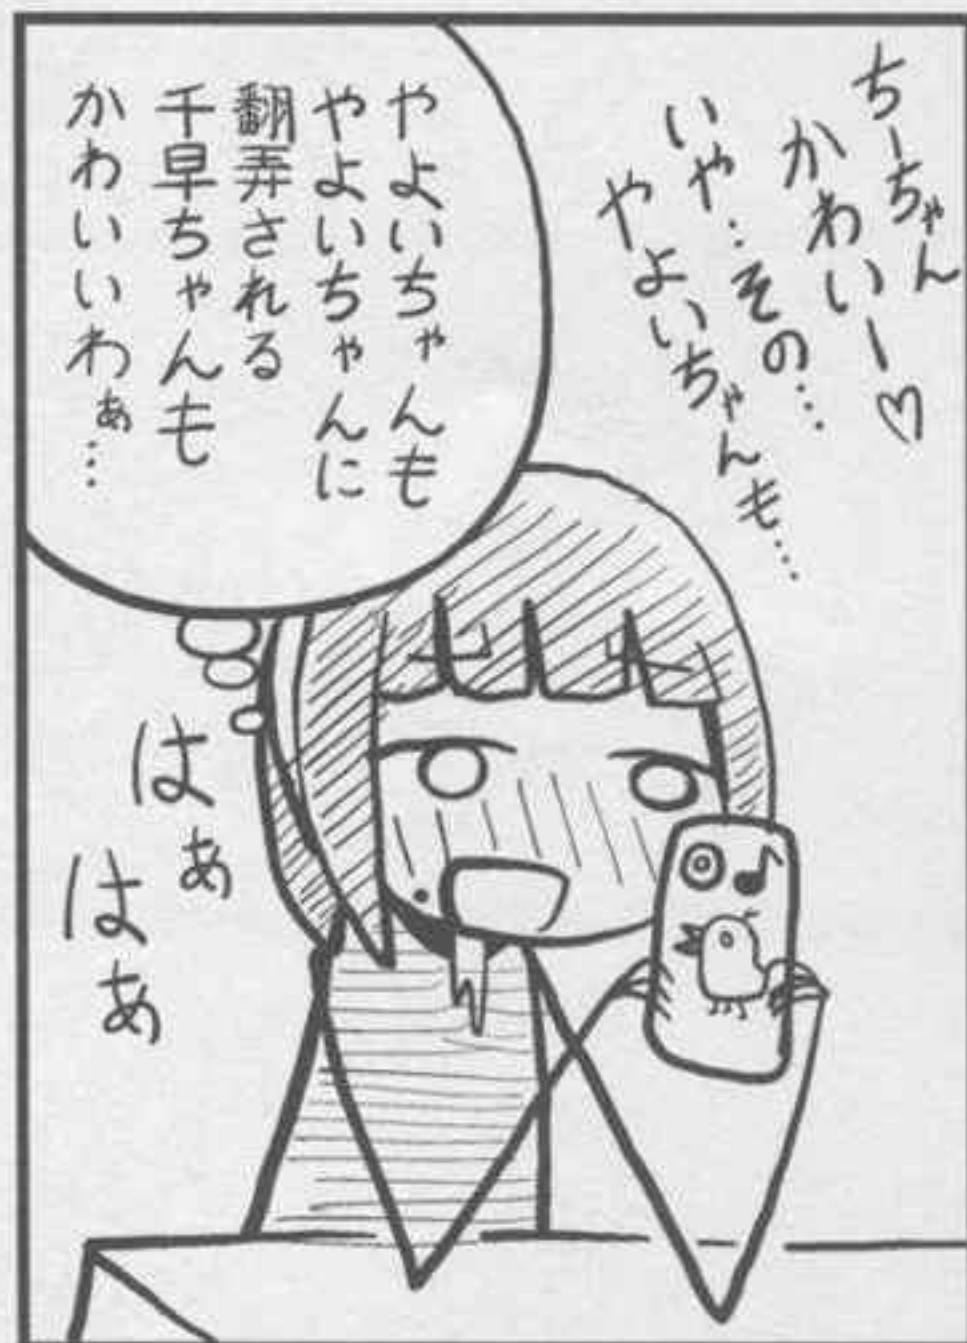 ちーちゃん
かわいー♡
いや‥その…
やよいちゃんも…
やよいちゃんも
やよいちゃんに
翻弄される
千早ちゃんも
かわいいわぁ…
はぁ
はぁ